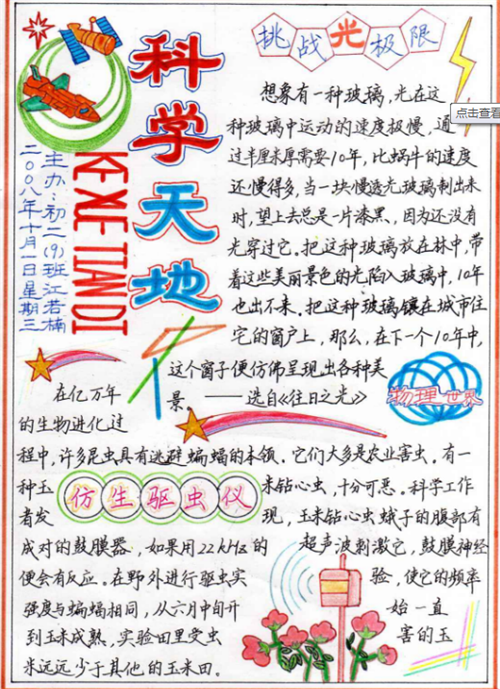 科学天地
KE XUE TIAN DI
主办：初二(9)班江若楠
二00八年十月一日星期三
挑战光极限
想象有一种玻璃，光在这
种玻璃中运动的速度极慢，通
过半厘米厚需要10年，比蜗牛的速度
还慢得多，当一块慢透光玻璃制出来
时，望上去总是一片漆黑，因为还没有
光穿过它。把这种玻璃放在林中，带
着这些美丽景色的光陷入玻璃中，10年
也出不来。把这种玻璃镶在城市住
宅的窗户上，那么，在下一个10年中，
这个窗子便仿佛呈现出各种美
景 ——选自《往日之光》
点击查看
物理世界
仿生驱虫仪
在亿万年
的生物进化过
程中，许多昆虫具有逃避蝙蝠的本领。它们大多是农业害虫，有一
种玉米钻心虫，十分可恶。科学工作
者发现，玉米钻心虫蛾子的腹部有
成对的鼓膜器，如果用22kHz的超声波刺激它，鼓膜神经
便会有反应。在野外进行驱虫实验，使它的频率
强度与蝙蝠相同，从六月中旬开始一直
到玉米成熟，实验田里受虫害的玉
米远远少于其他的玉米田。